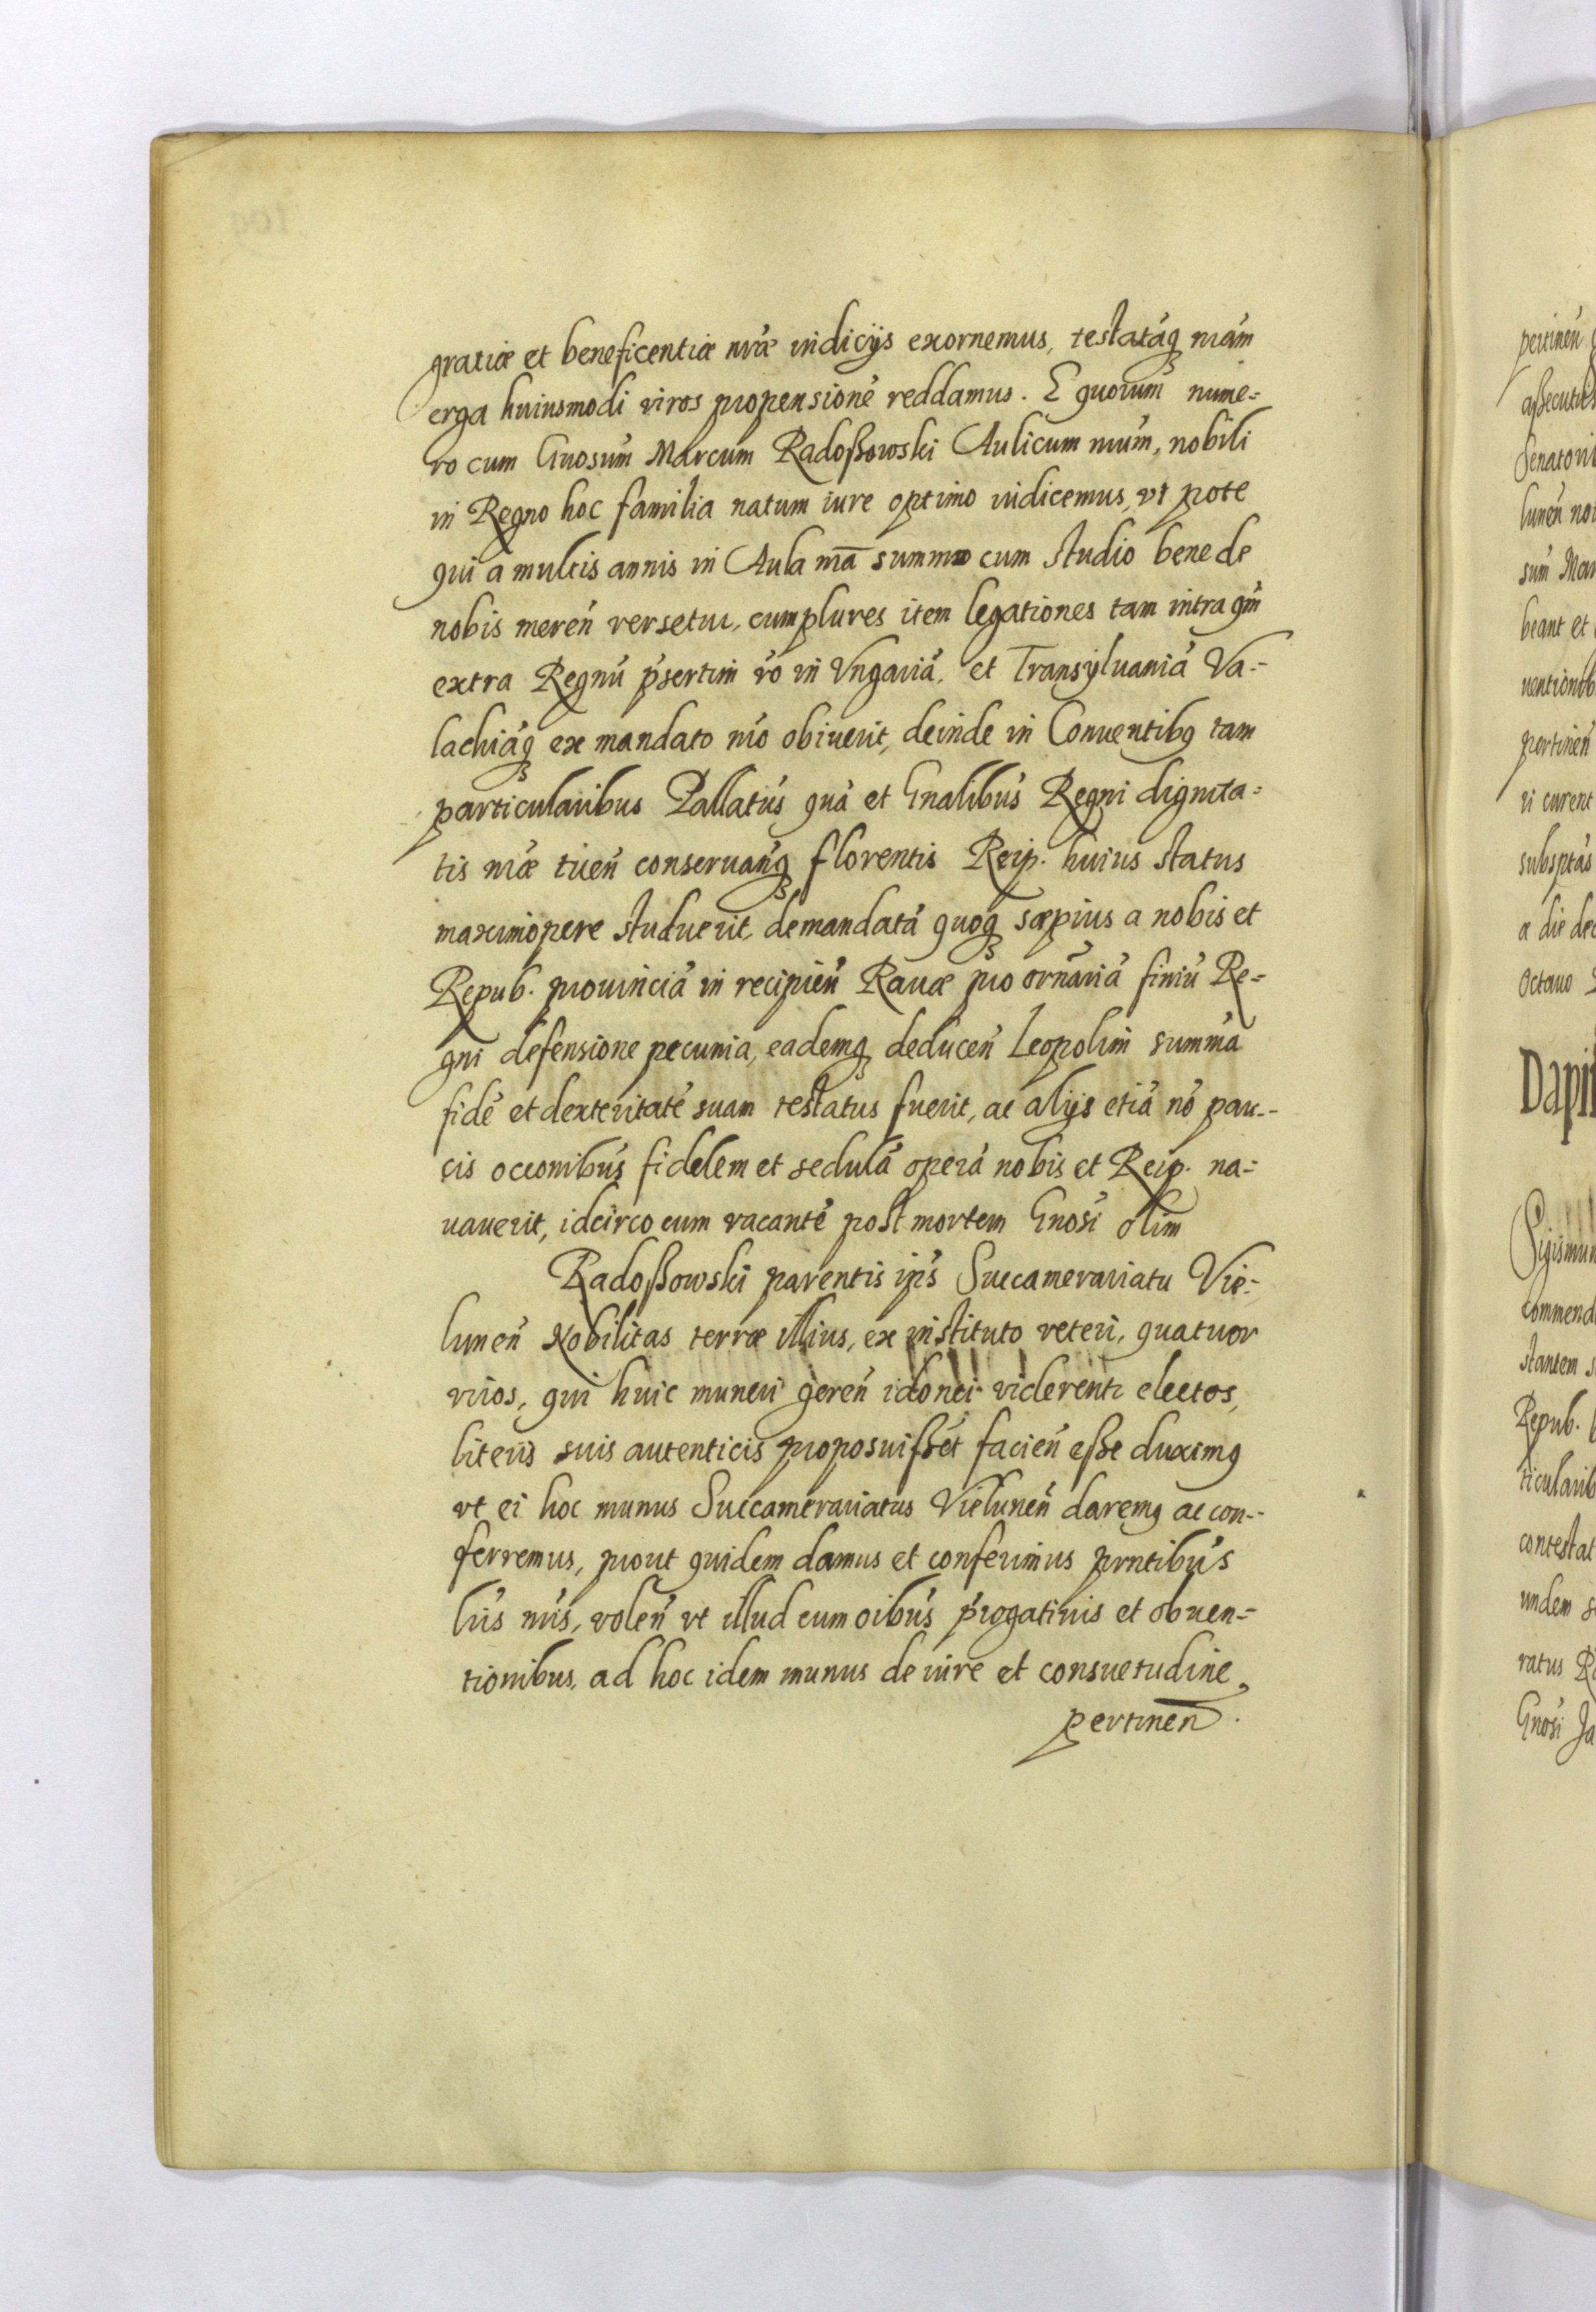 gratiæ et beneficentiæ nrǽ indicijs exornemus, testatáq nrám
erga huiusmodi viros propensioné reddamus. E quorum nume-
ro cum Gnosúm Marcum Radoßowski Aulicum nrúm, nobili
in Regno hoc familia natum iure optimo iudicemus, vt pote
qui a multis annis in Aula nrā summo cum studio bene de
nobis mereń versetur, cumplures item legationes tam intra qm̃
extra Regnú ṕsertim v́o in Vngariá, et Transyluaniá Va-
lachiáq ex mandato nrō obiuerit, deinde in Conuentibq tam
particularibus Pallatús quá et Gnalibús Regni dignita-
tis nrǽ tueń conseruańq florentis Reip. huius status
maximopere studuerit, demandatá quoq sæpius a nobis et
Repub. prouinciá in recipień Rauæ pro ornáriá finiú Re-
gni defensione pecunia, eademq deduceń Leopolim summá
fidé et dexteritaté suam testatus fuerit, ac alijs etiá nó pau-
cis occonibús fidelem et sedulá operá nobis et Reip. na-
uauerit, idcirco cum vacanté post mortem Gnosi olim
Radoßowski parentis ip̃s Succamerariatu Vie-
luneń Nobilitas terræ illius, ex instituto veteri, quatuor
viros, qui huic muneri gereń idonei viderentr electos,
literis suis autenticis proposuißét facień eße duximq
vt ei hoc munus Succamerariatus Vieluneń daremq ac con-
ferremus, prout quidem damus et conferimus prntibús
lr̃is nrís, voleń vt illud cum oibús ṕrogatiuis et obuen-
tionibus, ad hoc idem munus de iure et consuetudine
pertineñ.
perineń
aßecut
Senatori
luneń
súm Mar
beant et
uentionib
pertineń
ri curent
subsptás
a die
Octauo
Dapif
Sigismun
commend
stantem s
Repub.
ticularib
contestat
undem s
ratus R
Gnosi Ja